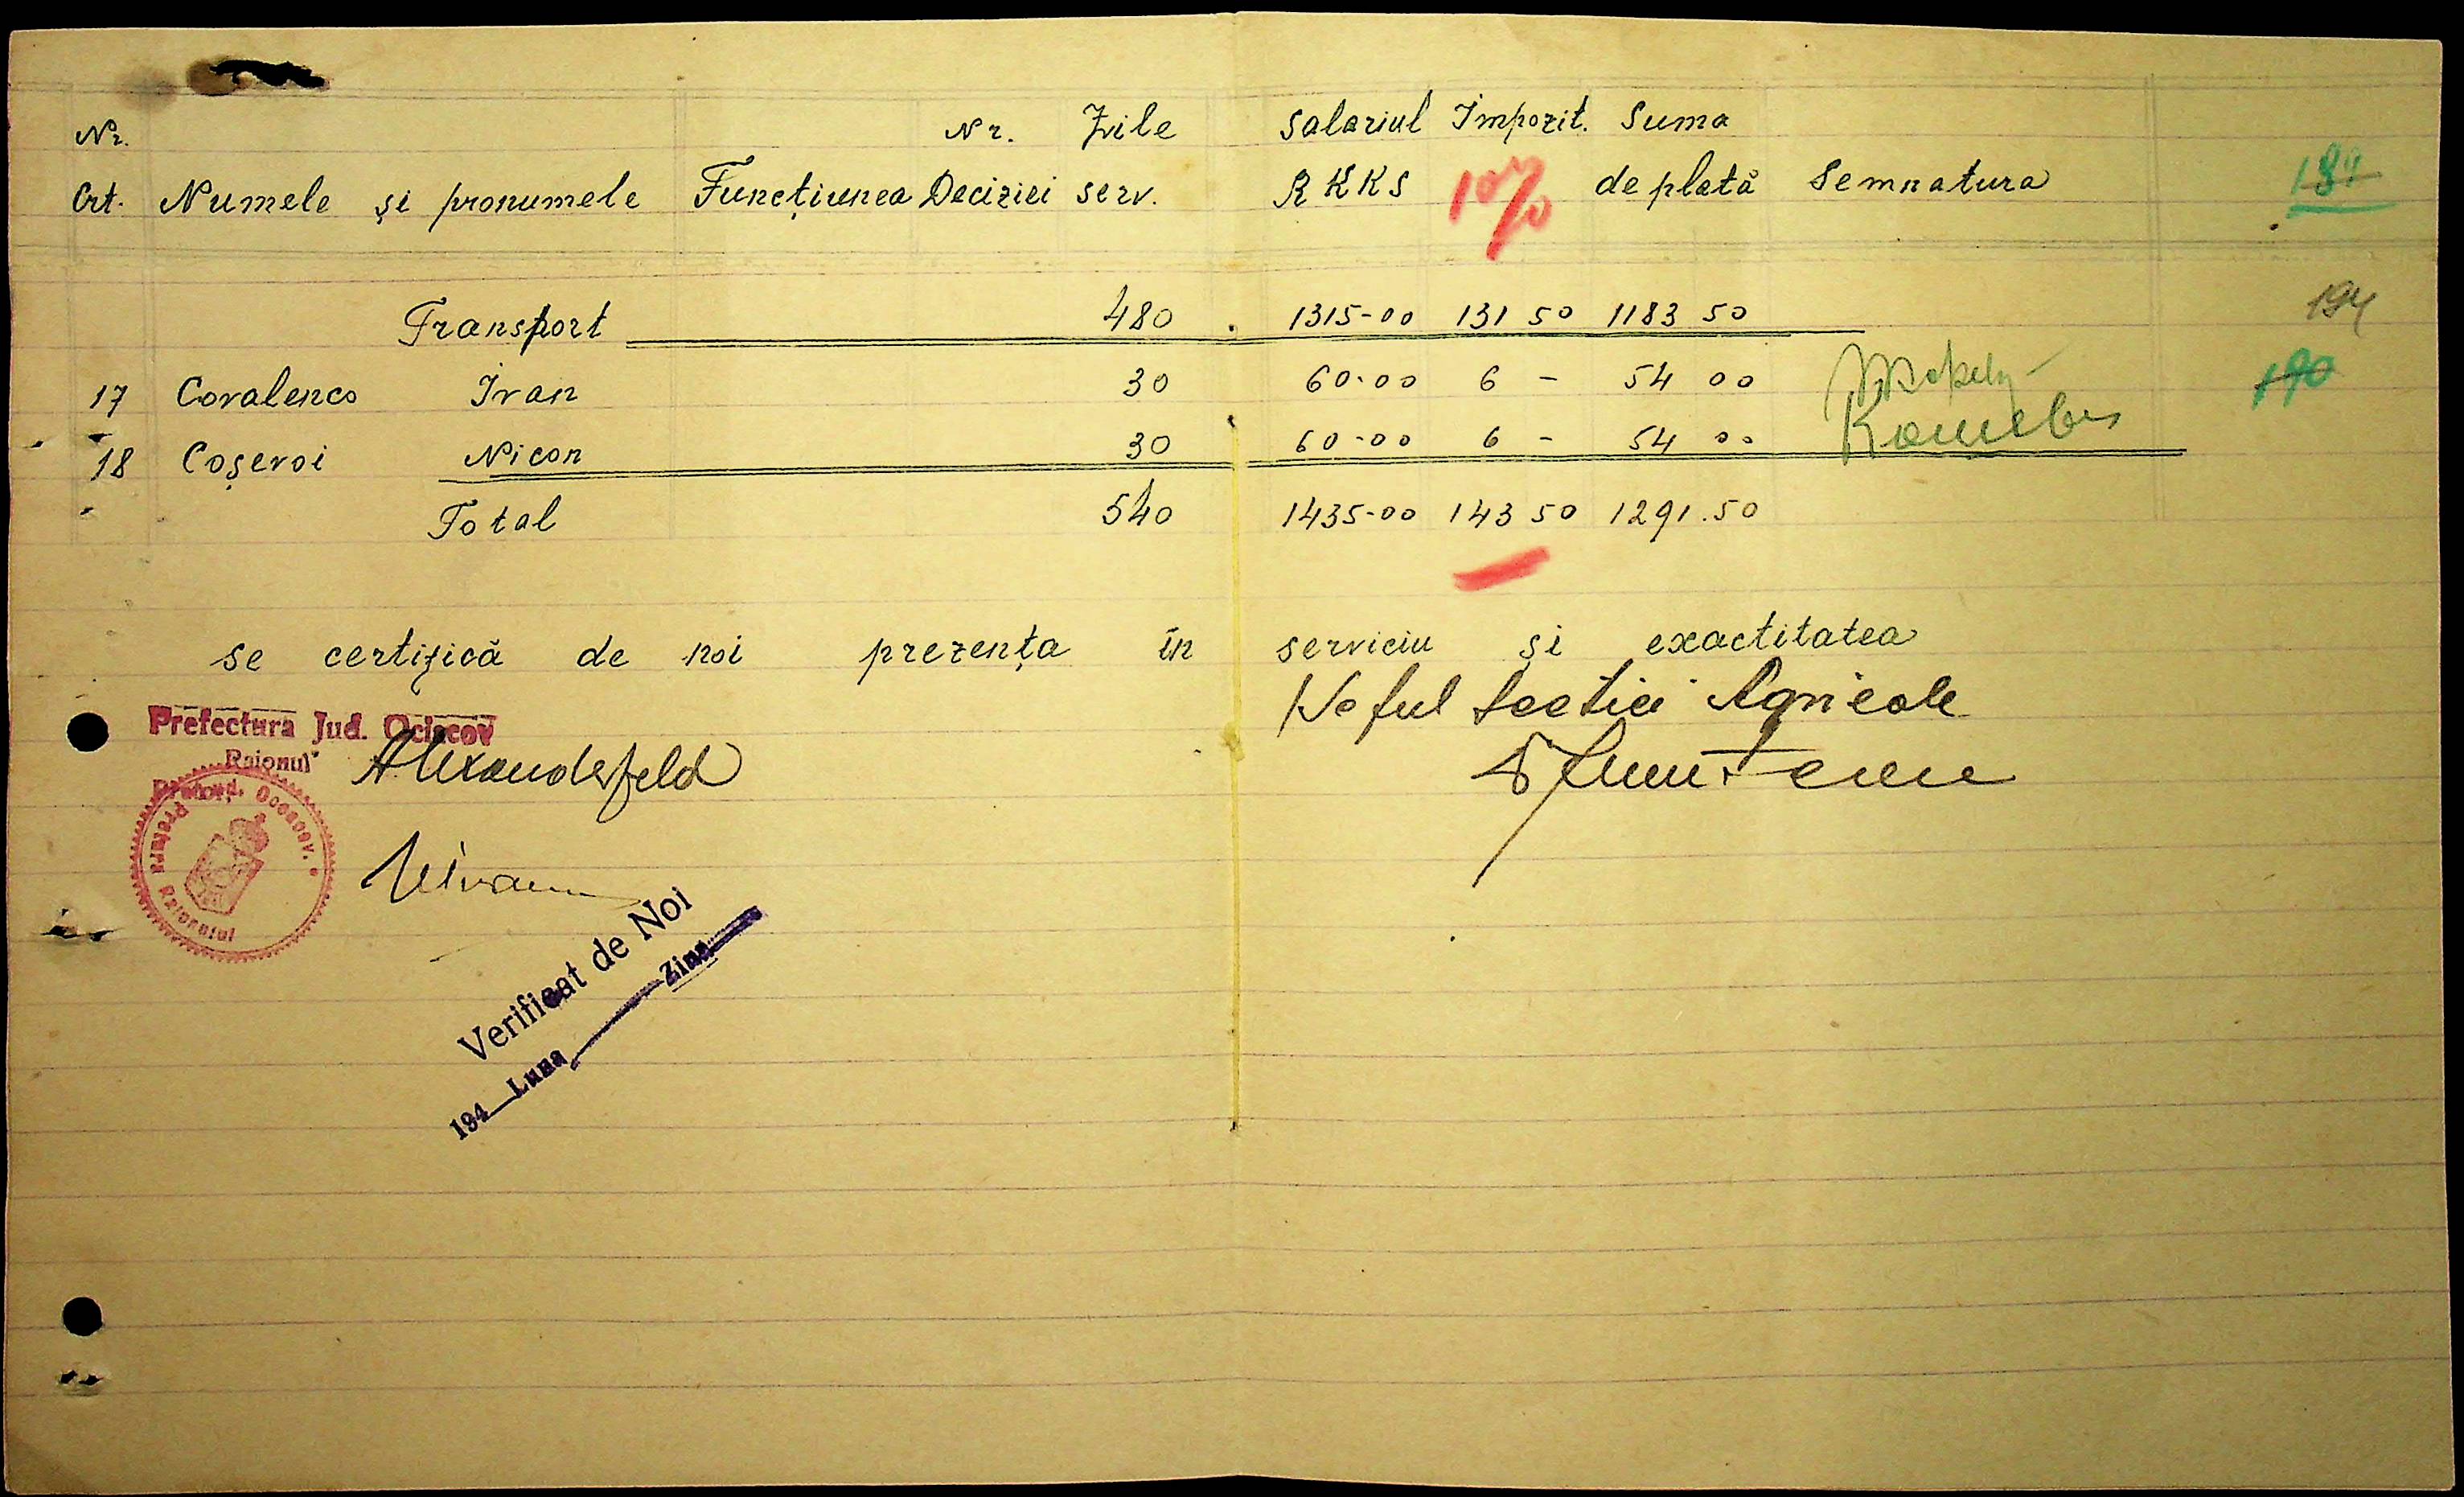 Nr. Nr. Zile Salariul Impozit. Suma
Crt. Numele și pronumele Funcțiunea Deciziei serv. RKKS 10% de plată Semnatura
Transport 480 1315-00 131 50 1183 50 194
17 Covalenco Ivan 30 60.00 6 - 54 00 190
18 Coșevoi Nicon 30 60-00 6 - 54 00
Total 540 1435-00 143 50 1291.50
se certifică de noi prezența în serviciu și exactitatea
Șeful Secției Agricole
Prefectura Jud. Ociacov
Raionul Alexanderfeld
Pretura Raionului
Verificat de Noi
194 Luna Ziua